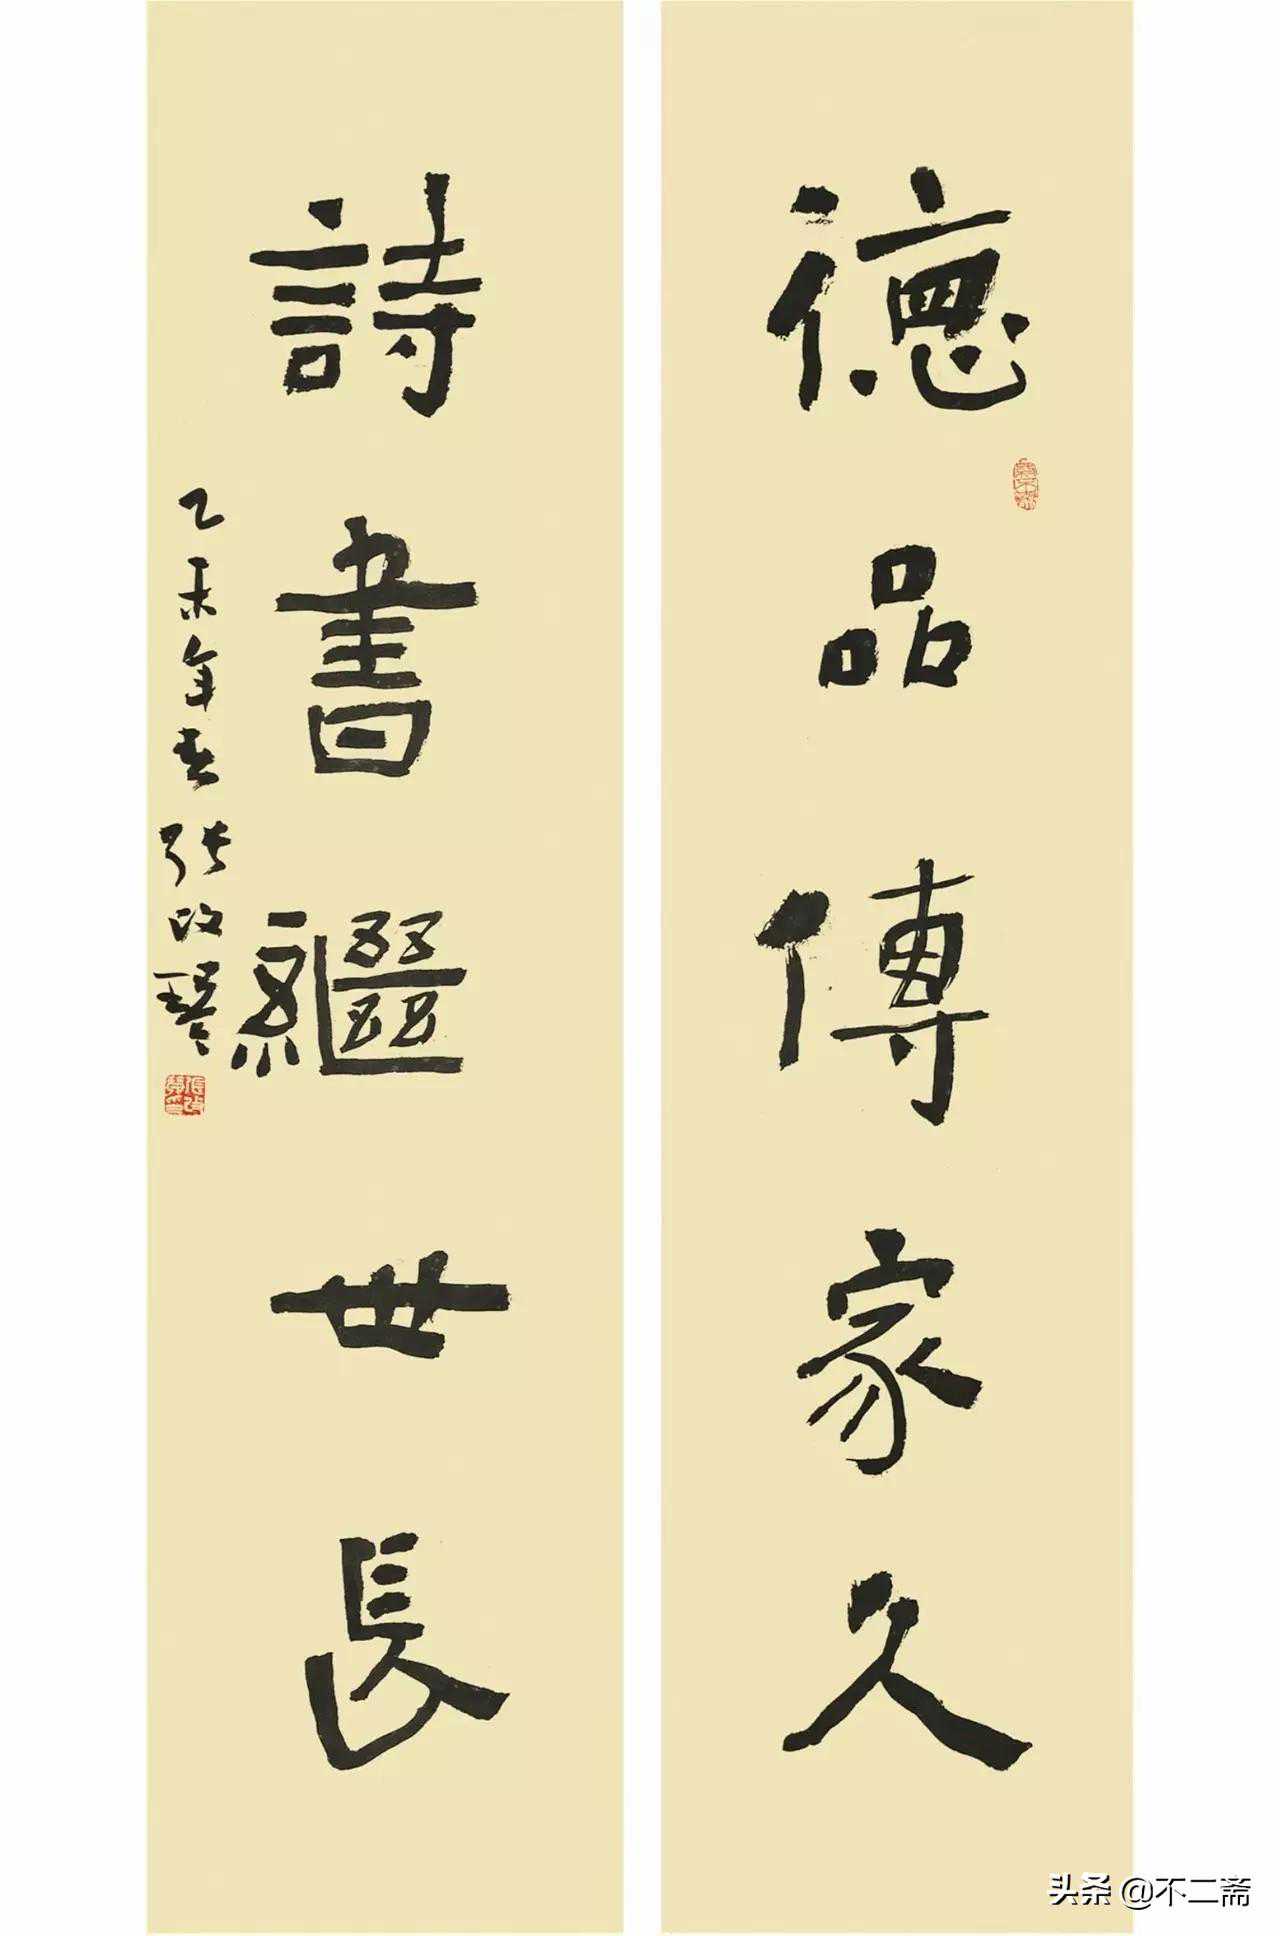 德品傳家久
詩書繼世長
乙未年春
张改琴
头条 @不二斋